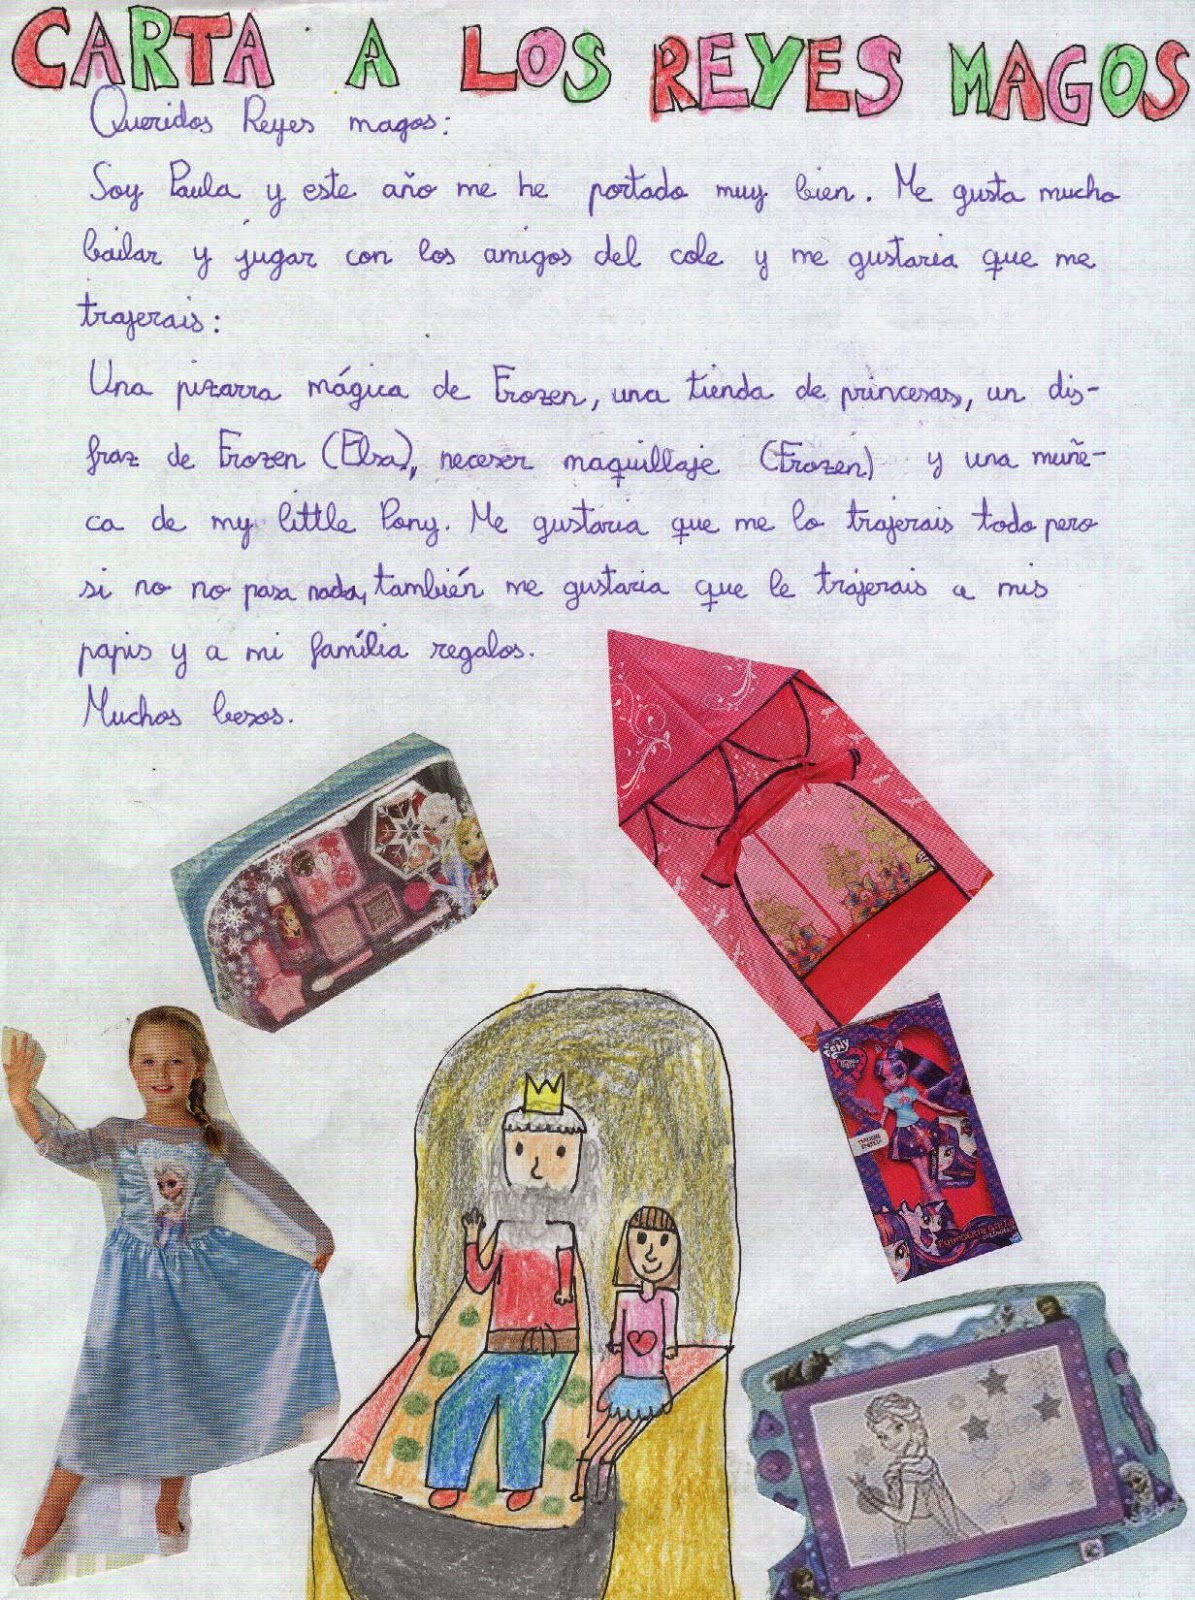 CARTA A LOS REYES MAGOS
Queridos Reyes magos:
Soy Paula y este año me he portado muy bien. Me gusta mucho
bailar y jugar con los amigos del cole y me gustaria que me
trajerais:
Una pizarra mágica de Frozen, una tienda de princesas, un dis-
fraz de Frozen (Elsa), neceser maquillaje (Frozen) y una muñe-
ca de my little Pony. Me gustaria que me lo trajerais todo pero
si no no pasa nada, también me gustaria que le trajerais a mis
papis y a mi família regalos.
Muchos besos.